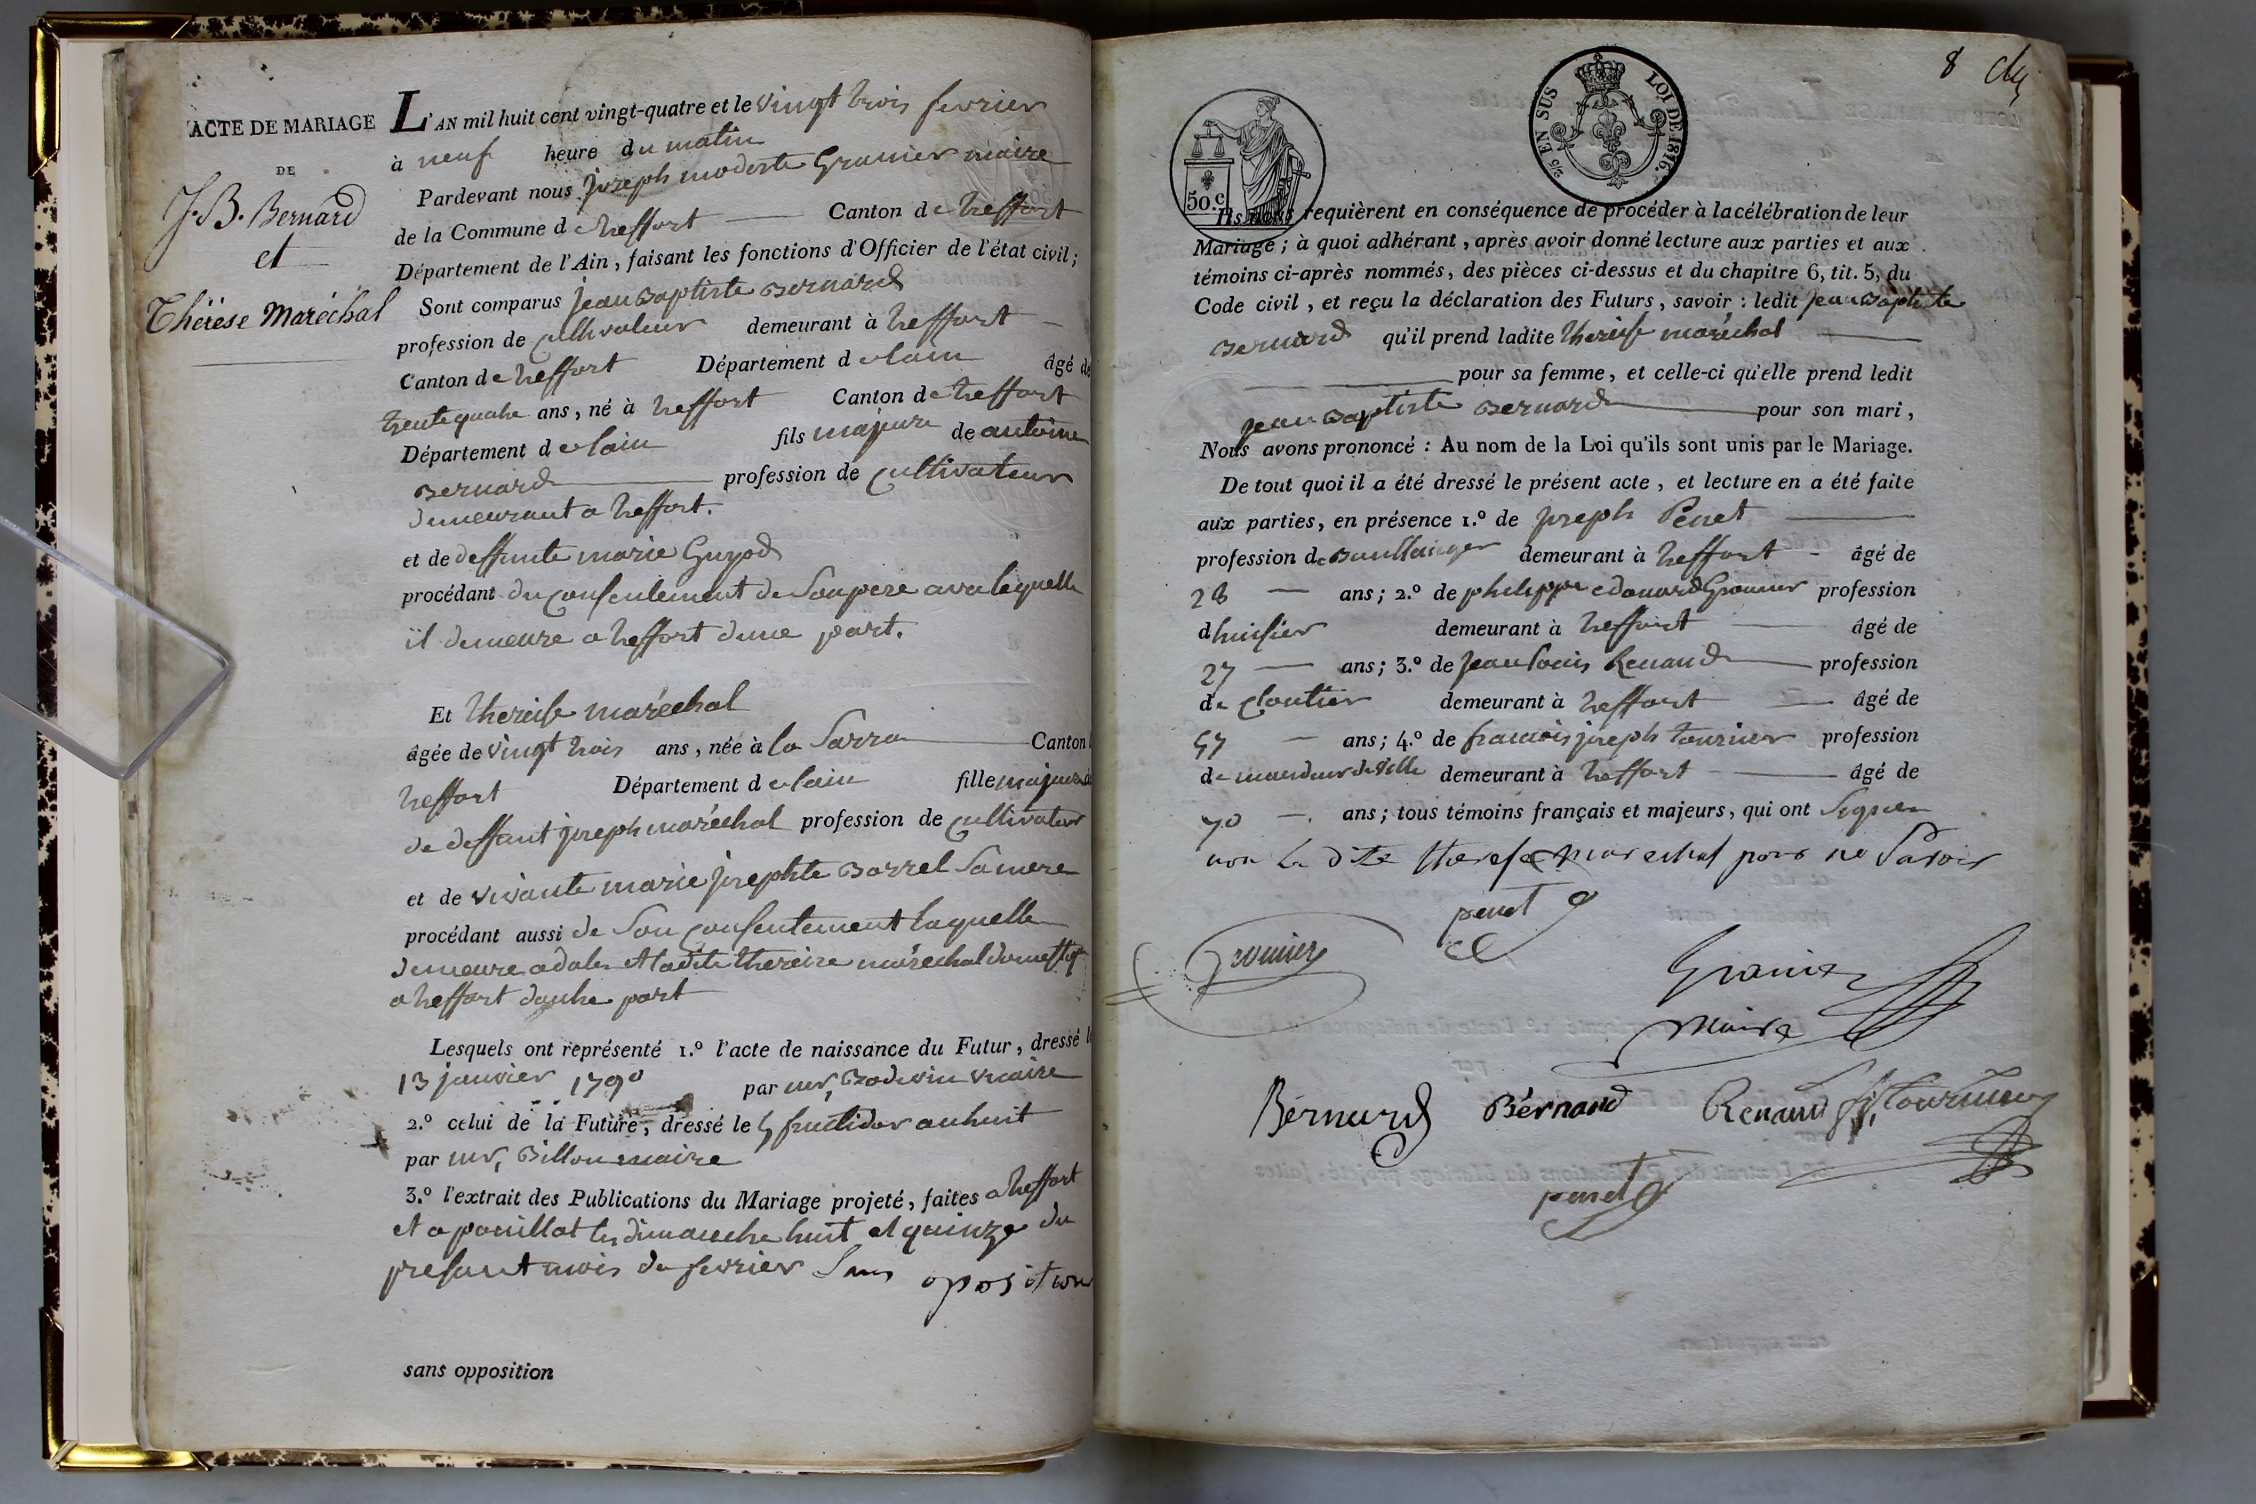 ACTE DE MARIAGE
DE
J. B. Bernard
et
Thérèse Maréchal
L'AN mil huit cent vingt-quatre et le vingt trois fevrier
à neuf heure du matin
Pardevant nous joseph modeste Gromier maire
de la Commune de treffort Canton de treffort
Département de l'Ain, faisant les fonctions d'Officier de l'état civil;
Sont comparus jean Baptiste Bernard
profession de cultivateur demeurant à treffort
Canton de treffort Département de lain âgé de
trente quatre ans, né à treffort Canton de treffort
Département de lain fils majeur de antoine
Bernard profession de cultivateur
demeurant a treffort.
et de deffunte marie Guyod
procédant du consentement de Son pere avec lequelle
il demeure a treffort dune part.
Et thereise maréchal
âgée de vingt trois ans, née à la Sarra Canton
treffort Département de lain fille majeure
de deffunt joseph maréchal profession de cultivateur
et de vivante marie josephte Borrel Sa mere
procédant aussi de Son consentement laquelle
demeure a et ladite thereise maréchal
a treffort dautre part
Lesquels ont représenté 1.º l'acte de naissance du Futur, dressé le
13 janvier 1790 par mr, Bodevin vicaire
2.º celui de la Future, dressé le 5 fructidor an huit
par mr, Billon maire
3.º l'extrait des Publications du Mariage projeté, faites a treffort
et a pouillat les dimanche huit et quinze du
present mois de fevrier Sans oposition
sans opposition
8
50. c.
25 EN SUS LOI DE 1816.
Ils nous requièrent en conséquence de procéder à la célébration de leur
Mariage; à quoi adhérant, après avoir donné lecture aux parties et aux
témoins ci-après nommés, des pièces ci-dessus et du chapitre 6, tit. 5, du
Code civil, et reçu la déclaration des Futurs, savoir : ledit jean Baptiste
Bernard qu'il prend ladite thereise maréchal
pour sa femme, et celle-ci qu'elle prend ledit
jean Baptiste Bernard pour son mari,
Nous avons prononcé : Au nom de la Loi qu'ils sont unis par le Mariage.
De tout quoi il a été dressé le présent acte, et lecture en a été faite
aux parties, en présence 1.º de joseph Penet
profession de Boullanger demeurant à treffort âgé de
28 ans; 2.º de philippe edouard Gromier profession
dhuissier demeurant à treffort âgé de
27 ans; 3.º de jean louis Renaud profession
de cloutier demeurant à treffort âgé de
57 ans; 4.º de francois joseph tournier profession
de mandeur de ville demeurant à treffort âgé de
70 ans; tous témoins français et majeurs, qui ont Signer
non la dite therese marechal pour ne Savoir
penet
Gromier
Gromier
Maire
Bernard Bérnard Renaud Tournier
penet